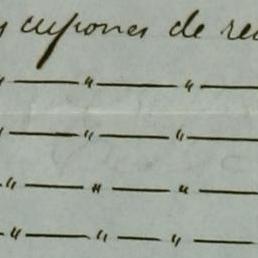 cupones de
" — " — " —
" — " — " —
" — " — " —
" — " — " —